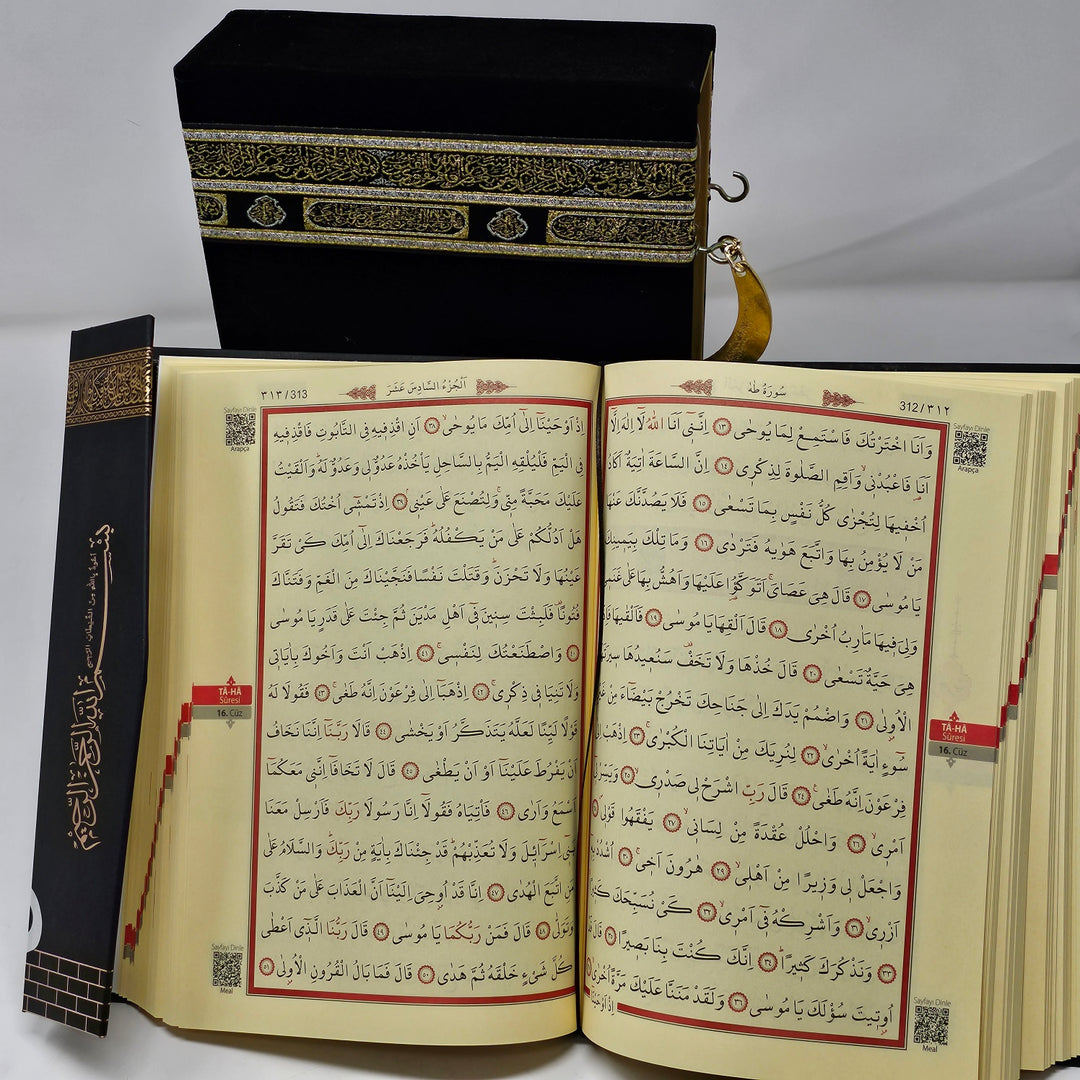 سُورَةُ طٰهٰ
312/٣١٢
Sayfayı Dinle
Arapça
وَاَنَا اخْتَرْتُكَ فَاسْتَمِعْ لِمَا يُوحٰى ﴿١٣﴾ اِنَّن۪ٓي اَنَا اللّٰهُ لَٓا اِلٰهَ اِلَّٓا
اَنَا۬ فَاعْبُدْن۪يۙ وَاَقِمِ الصَّلٰوةَ لِذِكْر۪ي ﴿١٤﴾ اِنَّ السَّاعَةَ اٰتِيَةٌ اَكَادُ
اُخْف۪يهَا لِتُجْزٰى كُلُّ نَفْسٍ بِمَا تَسْعٰى ﴿١٥﴾ فَلَا يَصُدَّنَّكَ عَنْهَا
مَنْ لَا يُؤْمِنُ بِهَا وَاتَّبَعَ هَوٰيهُ فَتَرْدٰى ﴿١٦﴾ وَمَا تِلْكَ بِيَم۪ينِكَ
يَا مُوسٰى ﴿١٧﴾ قَالَ هِيَ عَصَايَۚ اَتَوَكَّؤُ۬ا عَلَيْهَا وَاَهُشُّ بِهَا عَلٰى غَنَم۪ي
وَلِيَ ف۪يهَا مَاٰرِبُ اُخْرٰى ﴿١٨﴾ قَالَ اَلْقِهَا يَا مُوسٰى ﴿١٩﴾ فَاَلْقٰيهَا فَاِذَا
هِيَ حَيَّةٌ تَسْعٰى ﴿٢٠﴾ قَالَ خُذْهَا وَلَا تَخَفْ۠ سَنُع۪يدُهَا س۪يرَتَهَا
الْاُو۫لٰى ﴿٢١﴾ وَاضْمُمْ يَدَكَ اِلٰى جَنَاحِكَ تَخْرُجْ بَيْضَٓاءَ مِنْ غَيْرِ
سُٓوءٍ اٰيَةً اُخْرٰىۙ ﴿٢٢﴾ لِنُرِيَكَ مِنْ اٰيَاتِنَا الْكُبْرٰىۚ ﴿٢٣﴾ اِذْهَبْ اِلٰى
فِرْعَوْنَ اِنَّهُ طَغٰى۟ ﴿٢٤﴾ قَالَ رَبِّ اشْرَحْ ل۪ي صَدْر۪يۙ ﴿٢٥﴾ وَيَسِّرْ ل۪ٓي
اَمْر۪يۙ ﴿٢٦﴾ وَاحْلُلْ عُقْدَةً مِنْ لِسَان۪يۙ ﴿٢٧﴾ يَفْقَهُوا قَوْل۪ي
وَاجْعَلْ ل۪ي وَز۪يرًا مِنْ اَهْل۪يۙ ﴿٢٩﴾ هٰرُونَ اَخ۪يۚ ﴿٣٠﴾ اُشْدُدْ بِه۪ٓ
اَزْر۪يۙ ﴿٣١﴾ وَاَشْرِكْهُ ف۪ٓي اَمْر۪يۙ ﴿٣٢﴾ كَيْ نُسَبِّحَكَ كَث۪يرًاۙ
﴿٣٣﴾ وَنَذْكُرَكَ كَث۪يرًاۜ ﴿٣٤﴾ اِنَّكَ كُنْتَ بِنَا بَص۪يرًا ﴿٣٥﴾ قَالَ قَدْ
اُو۫ت۪يتَ سُؤْلَكَ يَا مُوسٰى ﴿٣٦﴾ وَلَقَدْ مَنَنَّا عَلَيْكَ مَرَّةً اُخْرٰىۙ
اِذْ اَوْحَيْنَٓا
TÂ-HÂ
Sûresi
16. Cüz
Sayfayı Dinle
Meal
اَلْجُزْءُ السَّادِسَ عَشَرَ
٣١٣/313
Sayfayı Dinle
Arapça
اِذْ اَوْحَيْنَٓا اِلٰٓى اُمِّكَ مَا يُوحٰىۙ ﴿٣٨﴾ اَنِ اقْذِف۪يهِ فِي التَّابُوتِ فَاقْذِف۪يهِ
فِي الْيَمِّ فَلْيُلْقِهِ الْيَمُّ بِالسَّاحِلِ يَأْخُذْهُ عَدُوٌّ ل۪ي وَعَدُوٌّ لَهُۜ وَاَلْقَيْتُ
عَلَيْكَ مَحَبَّةً مِنّ۪ي وَلِتُصْنَعَ عَلٰى عَيْن۪يۢ ﴿٣٩﴾ اِذْ تَمْش۪ٓي اُخْتُكَ فَتَقُولُ
هَلْ اَدُلُّكُمْ عَلٰى مَنْ يَكْفُلُهُۜ فَرَجَعْنَاكَ اِلٰٓى اُمِّكَ كَيْ تَقَرَّ
عَيْنُهَا وَلَا تَحْزَنَۜ وَقَتَلْتَ نَفْسًا فَنَجَّيْنَاكَ مِنَ الْغَمِّ وَفَتَنَّاكَ
فُتُونًا۠ فَلَبِثْتَ سِن۪ينَ ف۪ٓي اَهْلِ مَدْيَنَ ثُمَّ جِئْتَ عَلٰى قَدَرٍ يَا مُوسٰى
﴿٤٠﴾ وَاصْطَنَعْتُكَ لِنَفْس۪يۚ ﴿٤١﴾ اِذْهَبْ اَنْتَ وَاَخُوكَ بِاٰيَات۪ي
وَلَا تَنِيَا ف۪ي ذِكْر۪يۚ ﴿٤٢﴾ اِذْهَبَٓا اِلٰى فِرْعَوْنَ اِنَّهُ طَغٰىۚ ﴿٤٣﴾ فَقُولَا لَهُ
قَوْلًا لَيِّنًا لَعَلَّهُ يَتَذَكَّرُ اَوْ يَخْشٰى ﴿٤٤﴾ قَالَا رَبَّنَٓا اِنَّنَا نَخَافُ
اَنْ يَفْرُطَ عَلَيْنَٓا اَوْ اَنْ يَطْغٰى ﴿٤٥﴾ قَالَ لَا تَخَافَٓا اِنَّن۪ي مَعَكُمَٓا
اَسْمَعُ وَاَرٰى ﴿٤٦﴾ فَأْتِيَاهُ فَقُولَٓا اِنَّا رَسُولَا رَبِّكَ فَاَرْسِلْ مَعَنَا
بَن۪ٓي اِسْرَٓائ۪لَ وَلَا تُعَذِّبْهُمْۜ قَدْ جِئْنَاكَ بِاٰيَةٍ مِنْ رَبِّكَۜ وَالسَّلَامُ عَلٰى
مَنِ اتَّبَعَ الْهُدٰى ﴿٤٧﴾ اِنَّا قَدْ اُو۫حِيَ اِلَيْنَٓا اَنَّ الْعَذَابَ عَلٰى مَنْ كَذَّبَ
وَتَوَلّٰى ﴿٤٨﴾ قَالَ فَمَنْ رَبُّكُمَا يَا مُوسٰى ﴿٤٩﴾ قَالَ رَبُّنَا الَّذ۪ٓي اَعْطٰى
كُلَّ شَيْءٍ خَلْقَهُ ثُمَّ هَدٰى ﴿٥٠﴾ قَالَ فَمَا بَالُ الْقُرُونِ الْاُو۫لٰى ﴿٥١﴾
TÂ-HÂ
Sûresi
16. Cüz
Sayfayı Dinle
Meal
اعوذ بالله من الشيطان الرجيم
بسم الله الرحمن الرحيم